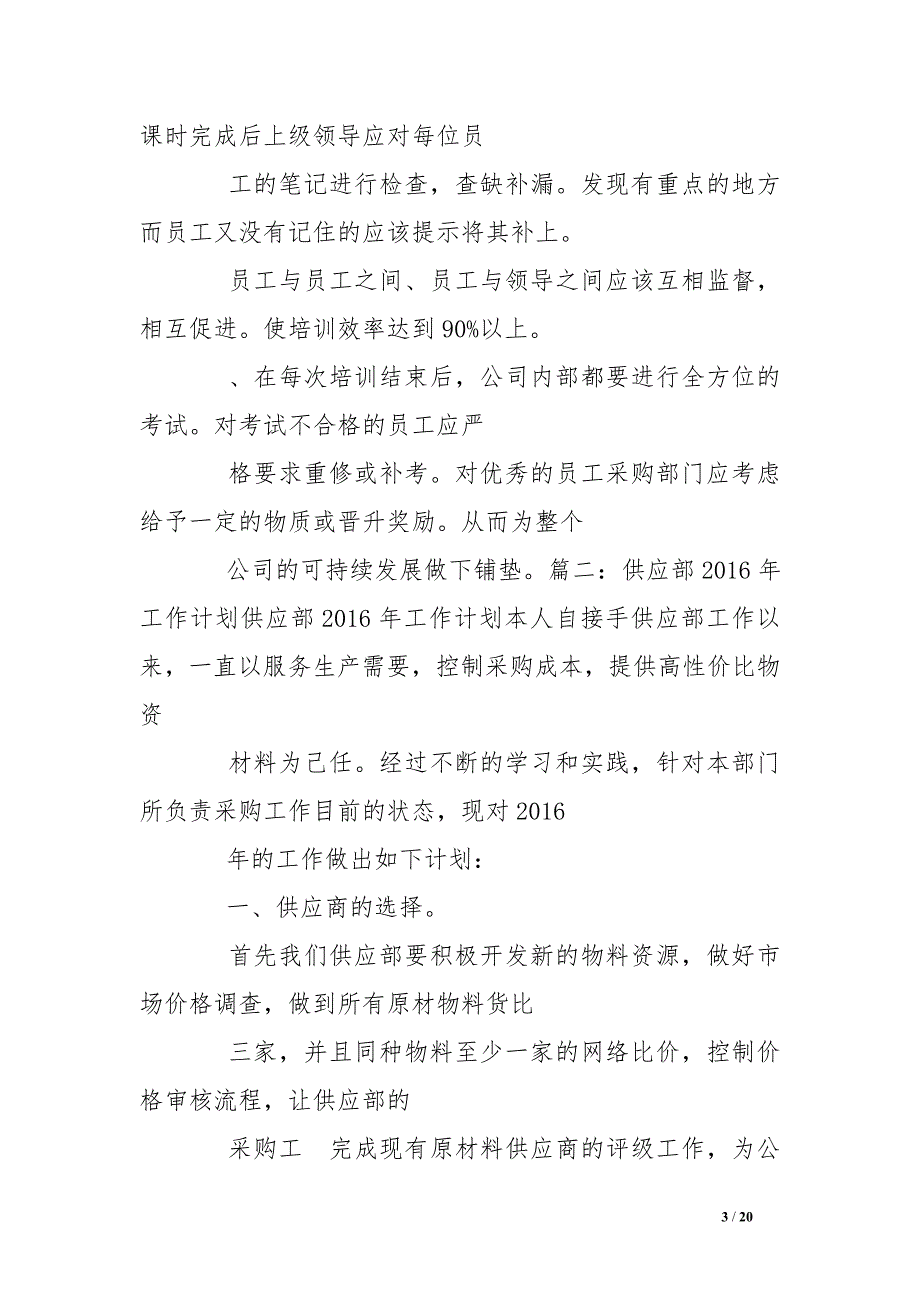 课时完成后上级领导应对每位员
工的笔记进行检查，查缺补漏。发现有重点的地方
而员工又没有记住的应该提示将其补上。
员工与员工之间、员工与领导之间应该互相监督，
相互促进。使培训效率达到 90%以上。
、在每次培训结束后，公司内部都要进行全方位的
考试。对考试不合格的员工应严
格要求重修或补考。对优秀的员工采购部门应考虑
给予一定的物质或晋升奖励。从而为整个
公司的可持续发展做下铺垫。篇二：供应部 2016 年
工作计划供应部 2016 年工作计划本人自接手供应部工作以
来，一直以服务生产需要，控制采购成本，提供高性价比物
资
材料为己任。经过不断的学习和实践，针对本部门
所负责采购工作目前的状态，现对 2016
年的工作做出如下计划：
一、供应商的选择。
首先我们供应部要积极开发新的物料资源，做好市
场价格调查，做到所有原材物料货比
三家，并且同种物料至少一家的网络比价，控制价
格审核流程，让供应部的
采购工　完成现有原材料供应商的评级工作，为公
3 / 20